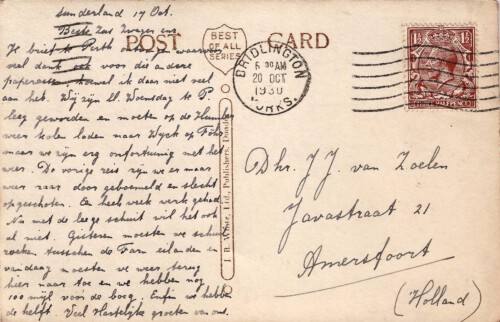 Sunderland 17 Oct.
Beste Zus Zwager enz
Je brief te Perth ontvangen waarvoor
veel dank ook voor die andere
paperassen, hoewel ik daar niet veel
aan heb. Wij zijn ll. Woensdag te P.
leeg geworden en moeten op de Humber
weer kolen laden naar Wyck op Föhr
maar we zijn erg onfortuinlijk met het
weer. De vorige reis zijn we er maar
weer raar door geboemeld en slecht
opgeschoten. Een heele week werk gehad.
Nu met de leege schuit wil het ook
al niet. Gisteren moesten we schuil
zoeken tusschen de Farn eilanden en
vandaag moesten we weer terug
hier naar toe en we hebben nog
100 mijl voor de boeg. Enfin we hebben
de helft. Veel Hartelijke groeten van ons.
POST CARD
BEST
OF ALL
SERIES
J. B. White, Ltd., Publishers, Dundee
BRIDLINGTON
20 OCT
1930
YORKS.
1½ 1½
Dhr. J. J. van Zoelen
Javastraat 21
Amersfoort
(Holland)